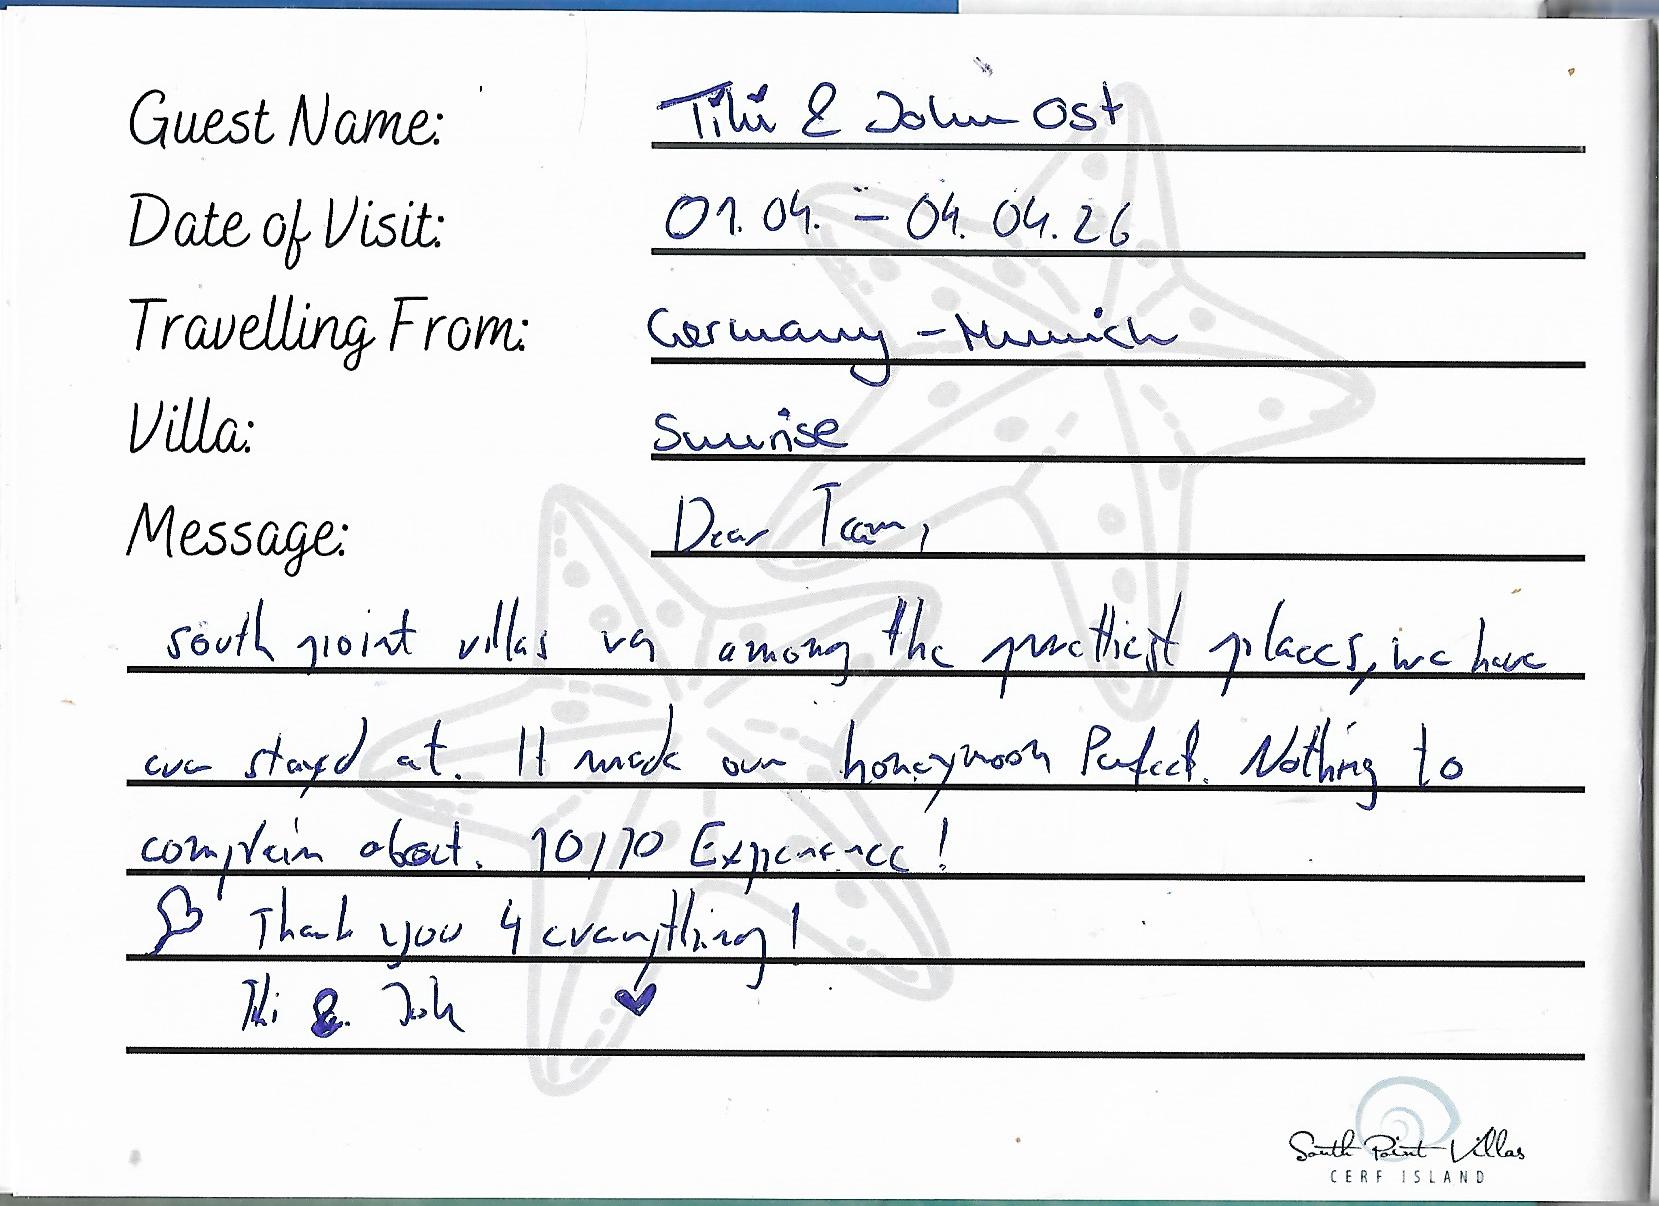 Guest Name: Tihi & John Ost
Date of Visit: 01.04. – 04.04.26
Travelling From: Germany – Munich
Villa: Sunrise
Message: Dear Team,
south point villas among the prettiest places, we have
ever stayed at. It made our honeymoon Perfect. Nothing to
complain about. 10/10 Experience!
Thank you 4 everything!
& Joh
South Point Villas
CERF ISLAND